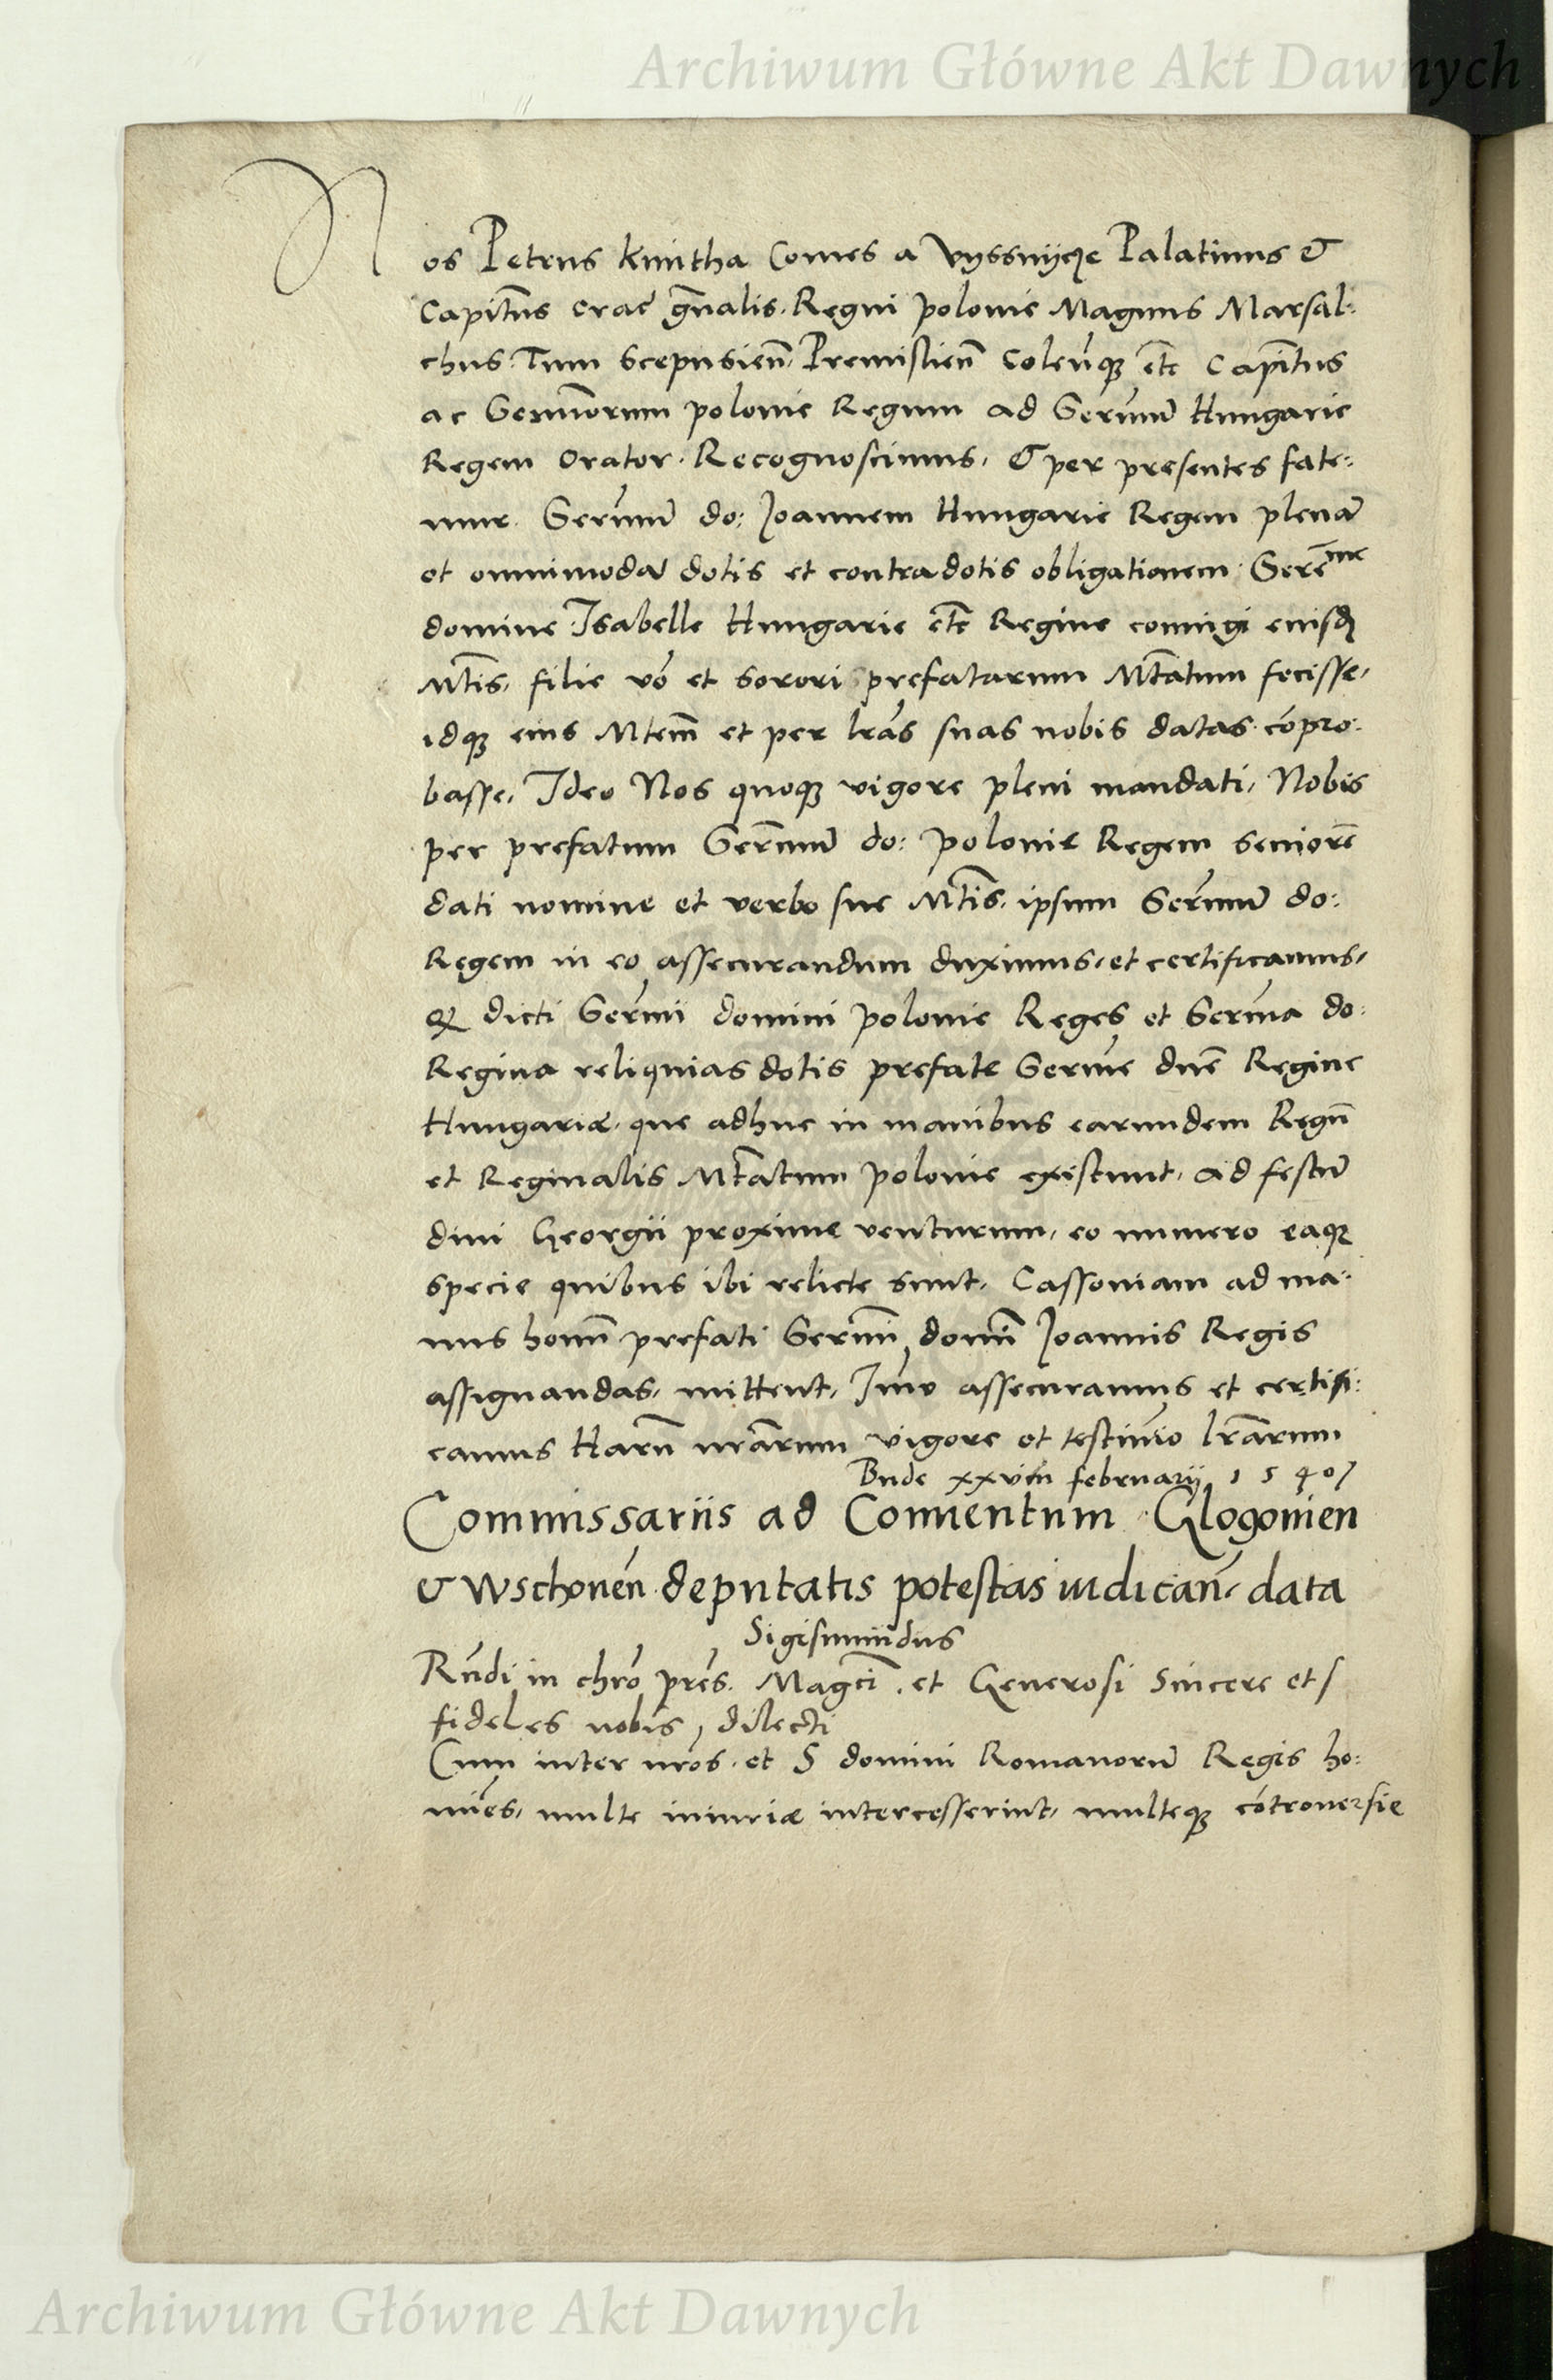 Archiwum Główne Akt Dawnych
Nos Petrus kmitha Comes a Vyssnycze Palatinus &
Capitneus crac gnalis. Regni polonie Magnus Marsal:
chus. Tum Scepusien. Premislien Colenque etc Capitneus
ac Sermorum polonie Regum ad Sermum Hungarie
Regem Orator. Recognoscimus, & per presentes fate:
mur. Sermum do: Joannem Hungarie Regem plenam
et omnimodam dotis et contradotis obligationem Serenme
domine Isabelle Hungarie etc Regine coniugi eiusdem
Mtis, filie vero et sorori prefatarum Mtatum fecisse,
idque eius Mtem et per lras suas nobis datas compro:
basse, Ideo Nos quoque vigore pleni mandati, Nobis
per prefatum Sermum do: polonie Regem seniorem
dati nomine et verbo sue Mtis, ipsum Sermum do:
Regem in eo assecurandum duximus, et certificamus,
Quod dicti Sermi domini polonie Reges et Serma do:
Regina reliquias dotis prefate Serme dne Regine
Hungariæ, que adhuc in manibus earumdem Regum
et Reginalis Mtatum polonie existunt, ad festum
divi Georgii proxime venturum, eo numero eaque
specie quibus ibi relicte sunt, Cassoviam ad ma:
nus homin prefati Sermi domini Joannis Regis
assignandas, mittent, Imo assecuramus et certifi:
camus Harum nrarum vigore et testimonio lrarum
Bude xxviii februarii 1540
Commissariis ad Conuentum Glogouien
& Wschouen deputatis potestas iudicandi data
Sigismundus
Rndi in chro pres. Magci. et Generosi Sincere et
fideles nobis, dilecti
Cum inter nros, et S domini Romanorum Regis ho:
mines, multe iniuriæ intercesserint, multeque controversie
Archiwum Główne Akt Dawnych